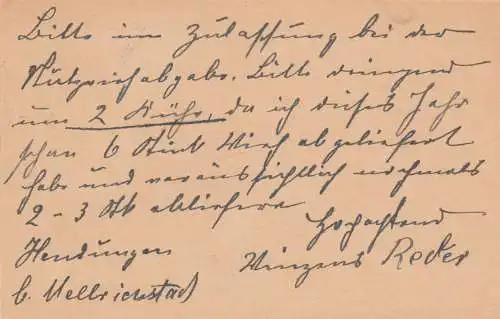 Bitte um Zulassung bei der
Nutzviehabgabe. Bitte dringend
um 2 Kühe, da ich dieses Jahr
schon 6 Stück Vieh abgeliefert
habe und voraussichtlich nochmals
2 - 3 Stk abliefere
Hochachtend
Hendungen
Vinzens Reder
b. Mellrichstadt